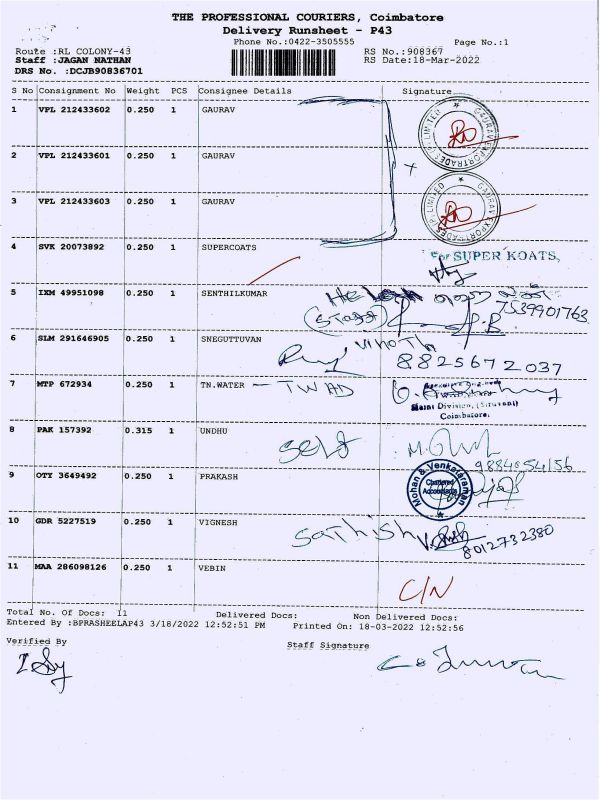 THE PROFESSIONAL COURIERS, Coimbatore
Delivery Runsheet - P43
Phone No.:0422-3505555 Page No.:1
Route :RL COLONY-43 RS No.:908367
Staff :JAGAN NATHAN RS Date:18-Mar-2022
DRS No. :DCJB90836701
S No Consignment No Weight PCS Consignee Details Signature
1 VPL 212433602 0.250 1 GAURAV
2 VPL 212433601 0.250 1 GAURAV
3 VPL 212433603 0.250 1 GAURAV
4 SVK 20073892 0.250 1 SUPERCOATS
For SUPER KOATS,
5 IXM 49951098 0.250 1 SENTHILKUMAR
7539901763
(Staff) P.B
6 SLM 291646905 0.250 1 SNEGUTTUVAN
Vinoth
8825672037
7 MTP 672934 0.250 1 TN.WATER - TWAD
Maint Division, (Siruvani)
Coimbatore.
8 PAK 157392 0.315 1 UNDHU
Self
9884054156
9 OTY 3649492 0.250 1 PRAKASH
Mohan & Venkataraman
Chartered
Accountants
10 GDR 5227519 0.250 1 VIGNESH
Sathish
8012732380
11 MAA 286098126 0.250 1 VEBIN
C/N
Total No. Of Docs: 11 Delivered Docs: Non Delivered Docs:
Entered By :BPRASHEELAP43 3/18/2022 12:52:51 PM Printed On: 18-03-2022 12:52:56
Verified By Staff Signature